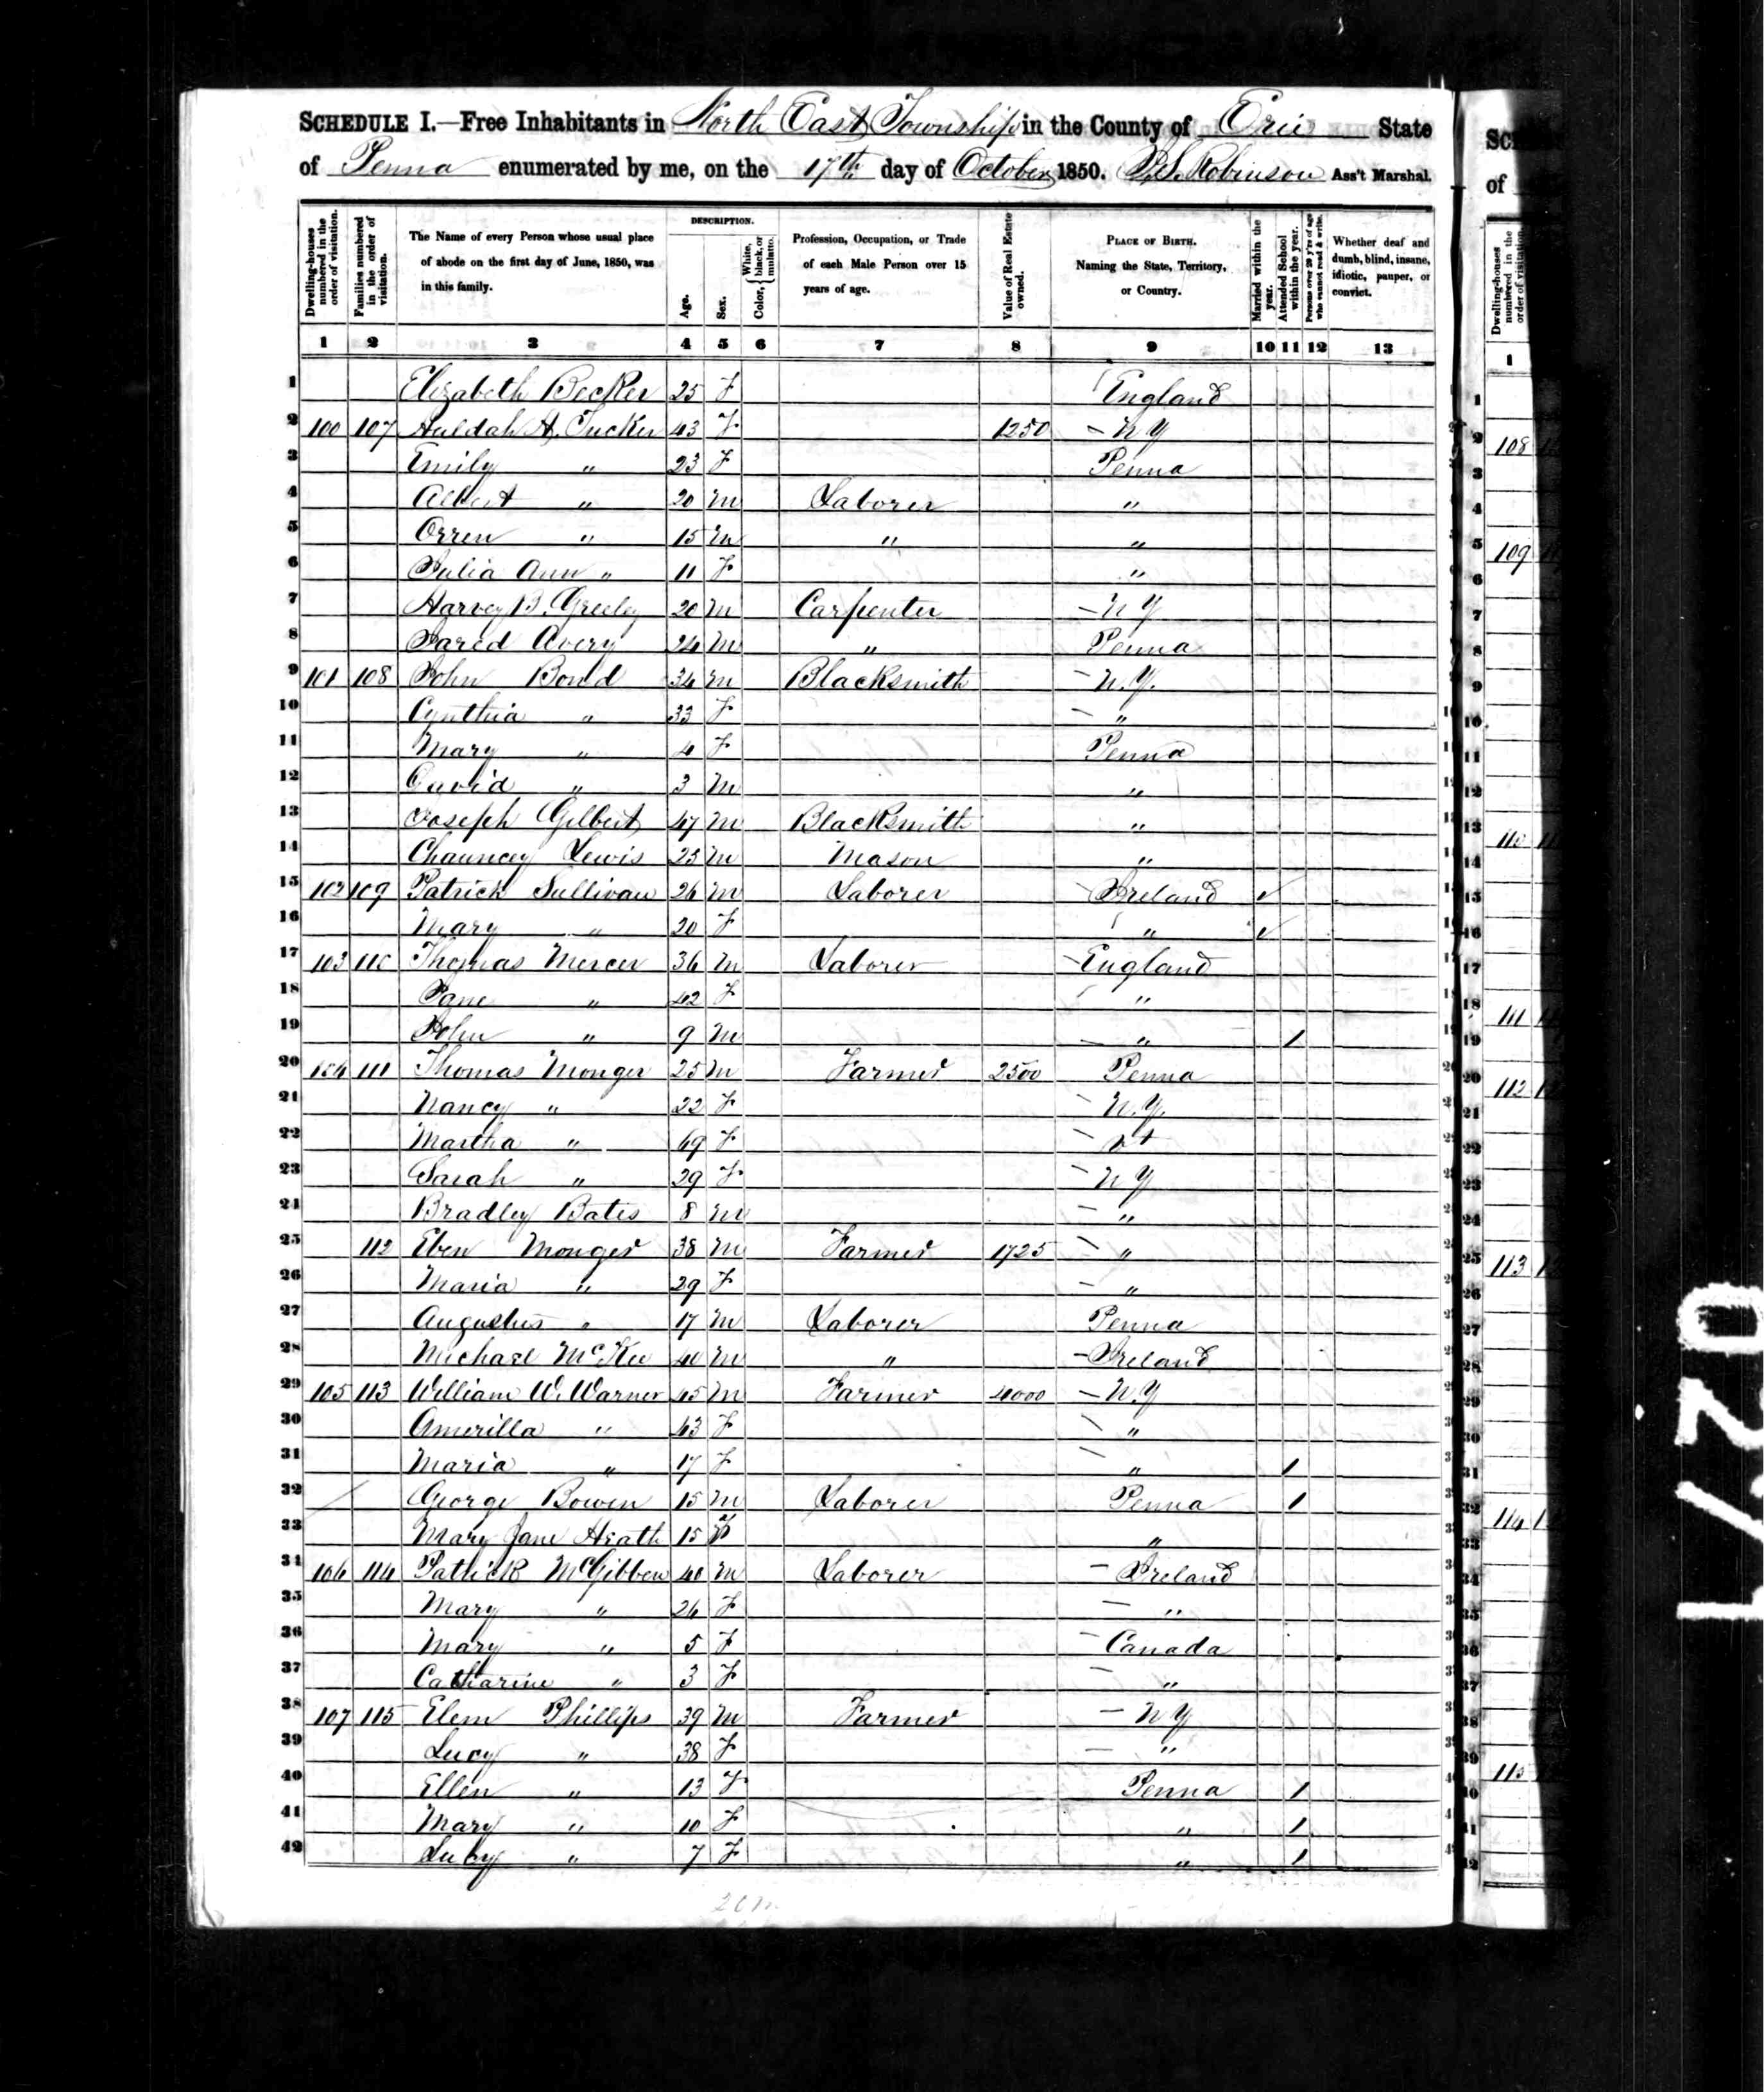 SCHEDULE I.—Free Inhabitants in North East Township in the County of Erie State
of Penna enumerated by me, on the 17th day of October 1850. P.S. Robinson Ass't Marshal.
Dwelling-houses numbered in the order of visitation.
Families numbered in the order of visitation.
The Name of every Person whose usual place of abode on the first day of June, 1850, was in this family.
DESCRIPTION.
Age.
Sex.
Color, White, black, or mulatto.
Profession, Occupation, or Trade of each Male Person over 15 years of age.
Value of Real Estate owned.
PLACE OF BIRTH. Naming the State, Territory, or Country.
Married within the year.
Attended School within the year.
Persons over 20 y'rs of age who cannot read & write.
Whether deaf and dumb, blind, insane, idiotic, pauper, or convict.
1 2 3 4 5 6 7 8 9 10 11 12 13
1 Elizabeth Becker 25 F England
2 100 107 Huldah A. Tucker 43 F 1250 – N Y
3 Emily " 23 F Penna
4 Albert " 20 M Laborer "
5 Orren " 15 M " "
6 Julia Ann " 11 F "
7 Harvey B. Greeley 20 M Carpenter – N Y
8 Jared Avery 24 M " Penna
9 101 108 John Bond 34 M Blacksmith – N.Y.
10 Cynthia " 33 F – "
11 Mary " 4 F Penna
12 David " 3 M "
13 Joseph Gilbert 47 M Blacksmith "
14 Chauncey Lewis 23 M Mason "
15 102 109 Patrick Sullivan 26 M Laborer – Ireland ✓
16 Mary " 20 F " ✓
17 103 110 Thomas Mercer 36 M Laborer – England
18 Jane " 42 F – "
19 John " 9 M – " 1
20 104 111 Thomas Monger 25 M Farmer 2500 Penna
21 Nancy " 22 F – N.Y.
22 Martha " 69 F – Vt
23 Sarah " 29 F – N Y
24 Bradley Bates 8 M – "
25 112 Eben Monger 38 M Farmer 1725 – "
26 Maria " 29 F – "
27 Augustus " 17 M Laborer Penna
28 Michael McKee 40 M " – Ireland
29 105 113 William W. Warner 45 M Farmer 4000 – N.Y
30 Amerilla " 43 F – "
31 Maria " 17 F – " 1
32 George Bowen 15 M Laborer Penna 1
33 Mary Jane Heath 15 F "
34 106 114 Patrick McGibben 40 M Laborer – Ireland
35 Mary " 26 F – "
36 Mary " 5 F – Canada
37 Catharine " 3 F – "
38 107 115 Elem Phillips 39 M Farmer – N Y
39 Lucy " 38 F – "
40 Ellen " 13 F Penna 1
41 Mary " 10 F " 1
42 Luby " 7 F " 1
Dwelling-houses numbered in the order of visitation.
of
1
108
109
110
111
112
113
114
115